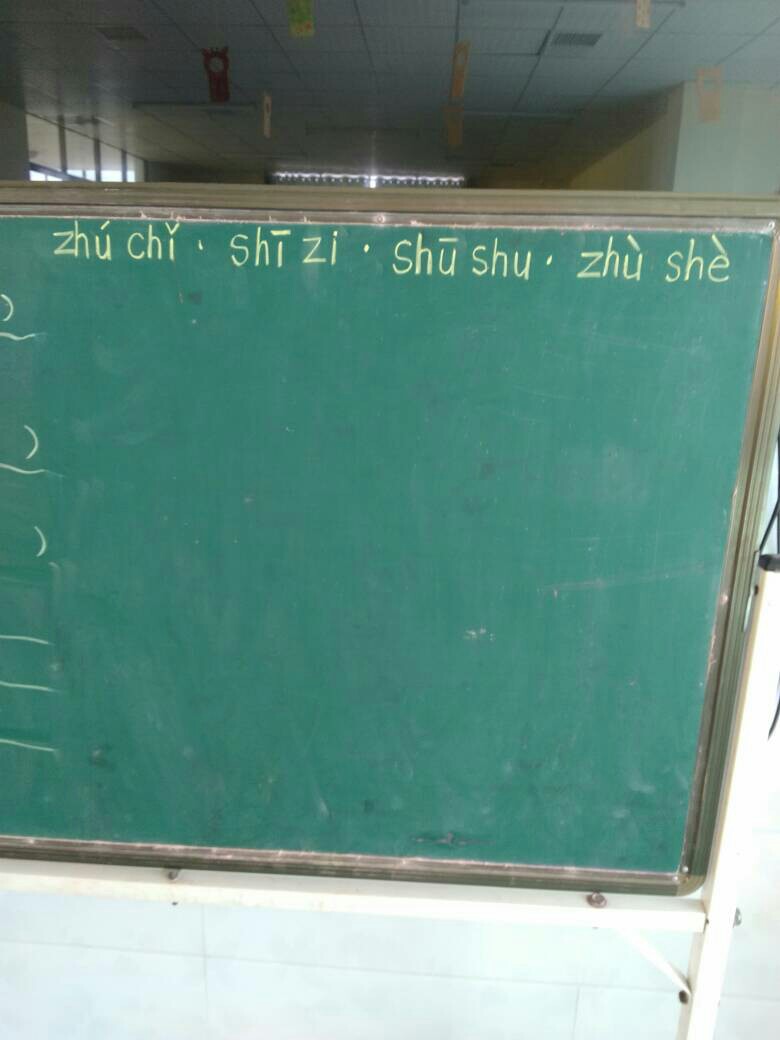 zhú chǐ · shī zi · shū shu · zhù shè